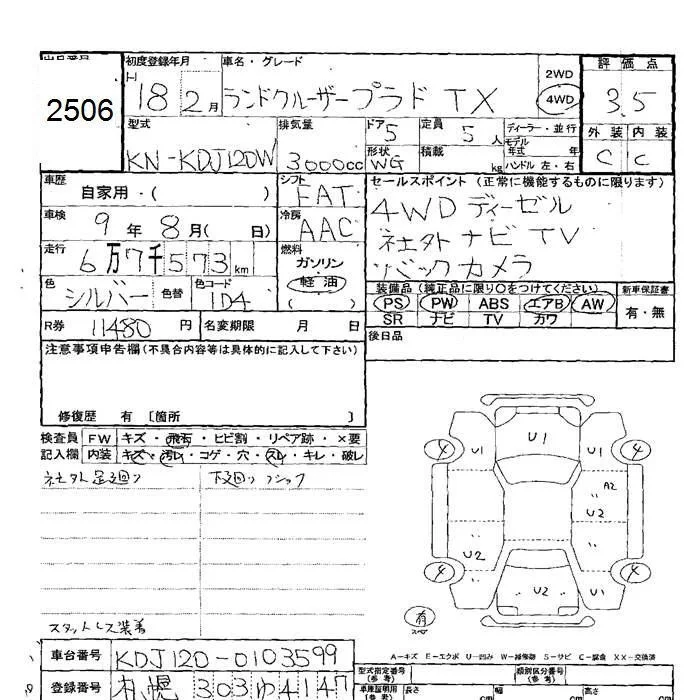 出品番号 初度登録年月 車名・グレード 評価点
2506 H 18 2月 ランドクルーザープラド TX 2WD 4WD 3.5
型式 排気量 ドア 5 定員 5人 ディーラー・並行 外装 内装
KN-KDJ120W 3000cc 形状 WG 積載 kg モデル年式 年 ハンドル 左・右 C C
車歴 自家用・( ) シフト FAT セールスポイント(正常に機能するものに限ります)
車検 9年8月( 日) 冷房 AAC 4WD ディーゼル
走行 6万7千573km 燃料 ガソリン 軽油 ( ) 社外ナビTV
色 シルバー 色替 色コード 1D4 バックカメラ
装備品(純正品に限り○をつけてください) 新車保証書
PS PW ABS エアB AW 有・無
SR ナビ TV カワ
R券 11480円 名変期限 月 日 後日品
注意事項申告欄(不具合内容等は具体的に記入して下さい)
修復歴 有 [箇所 ]
検査員 FW キズ・飛石・ヒビ割・リペア跡・×要
記入欄 内装 キズ・汚レ・コゲ・穴・スレ・キレ・破レ
社外足廻り 下廻りシャシブラック
U1 U1 U1
4 4
A2
U2
U2
4 4
U2 U1
有
スペア
スタットレス装着
A-キズ E-エクボ U-凹み W-補修跡 S-サビ C-腐食 XX-交換済
車台番号 KDJ120-0103599
登録番号 札幌 303 ゆ 4147
型式指定番号(参考) 類別区分番号(参考)
車庫証明用(参考) 長さ cm 幅 cm 高さ cm